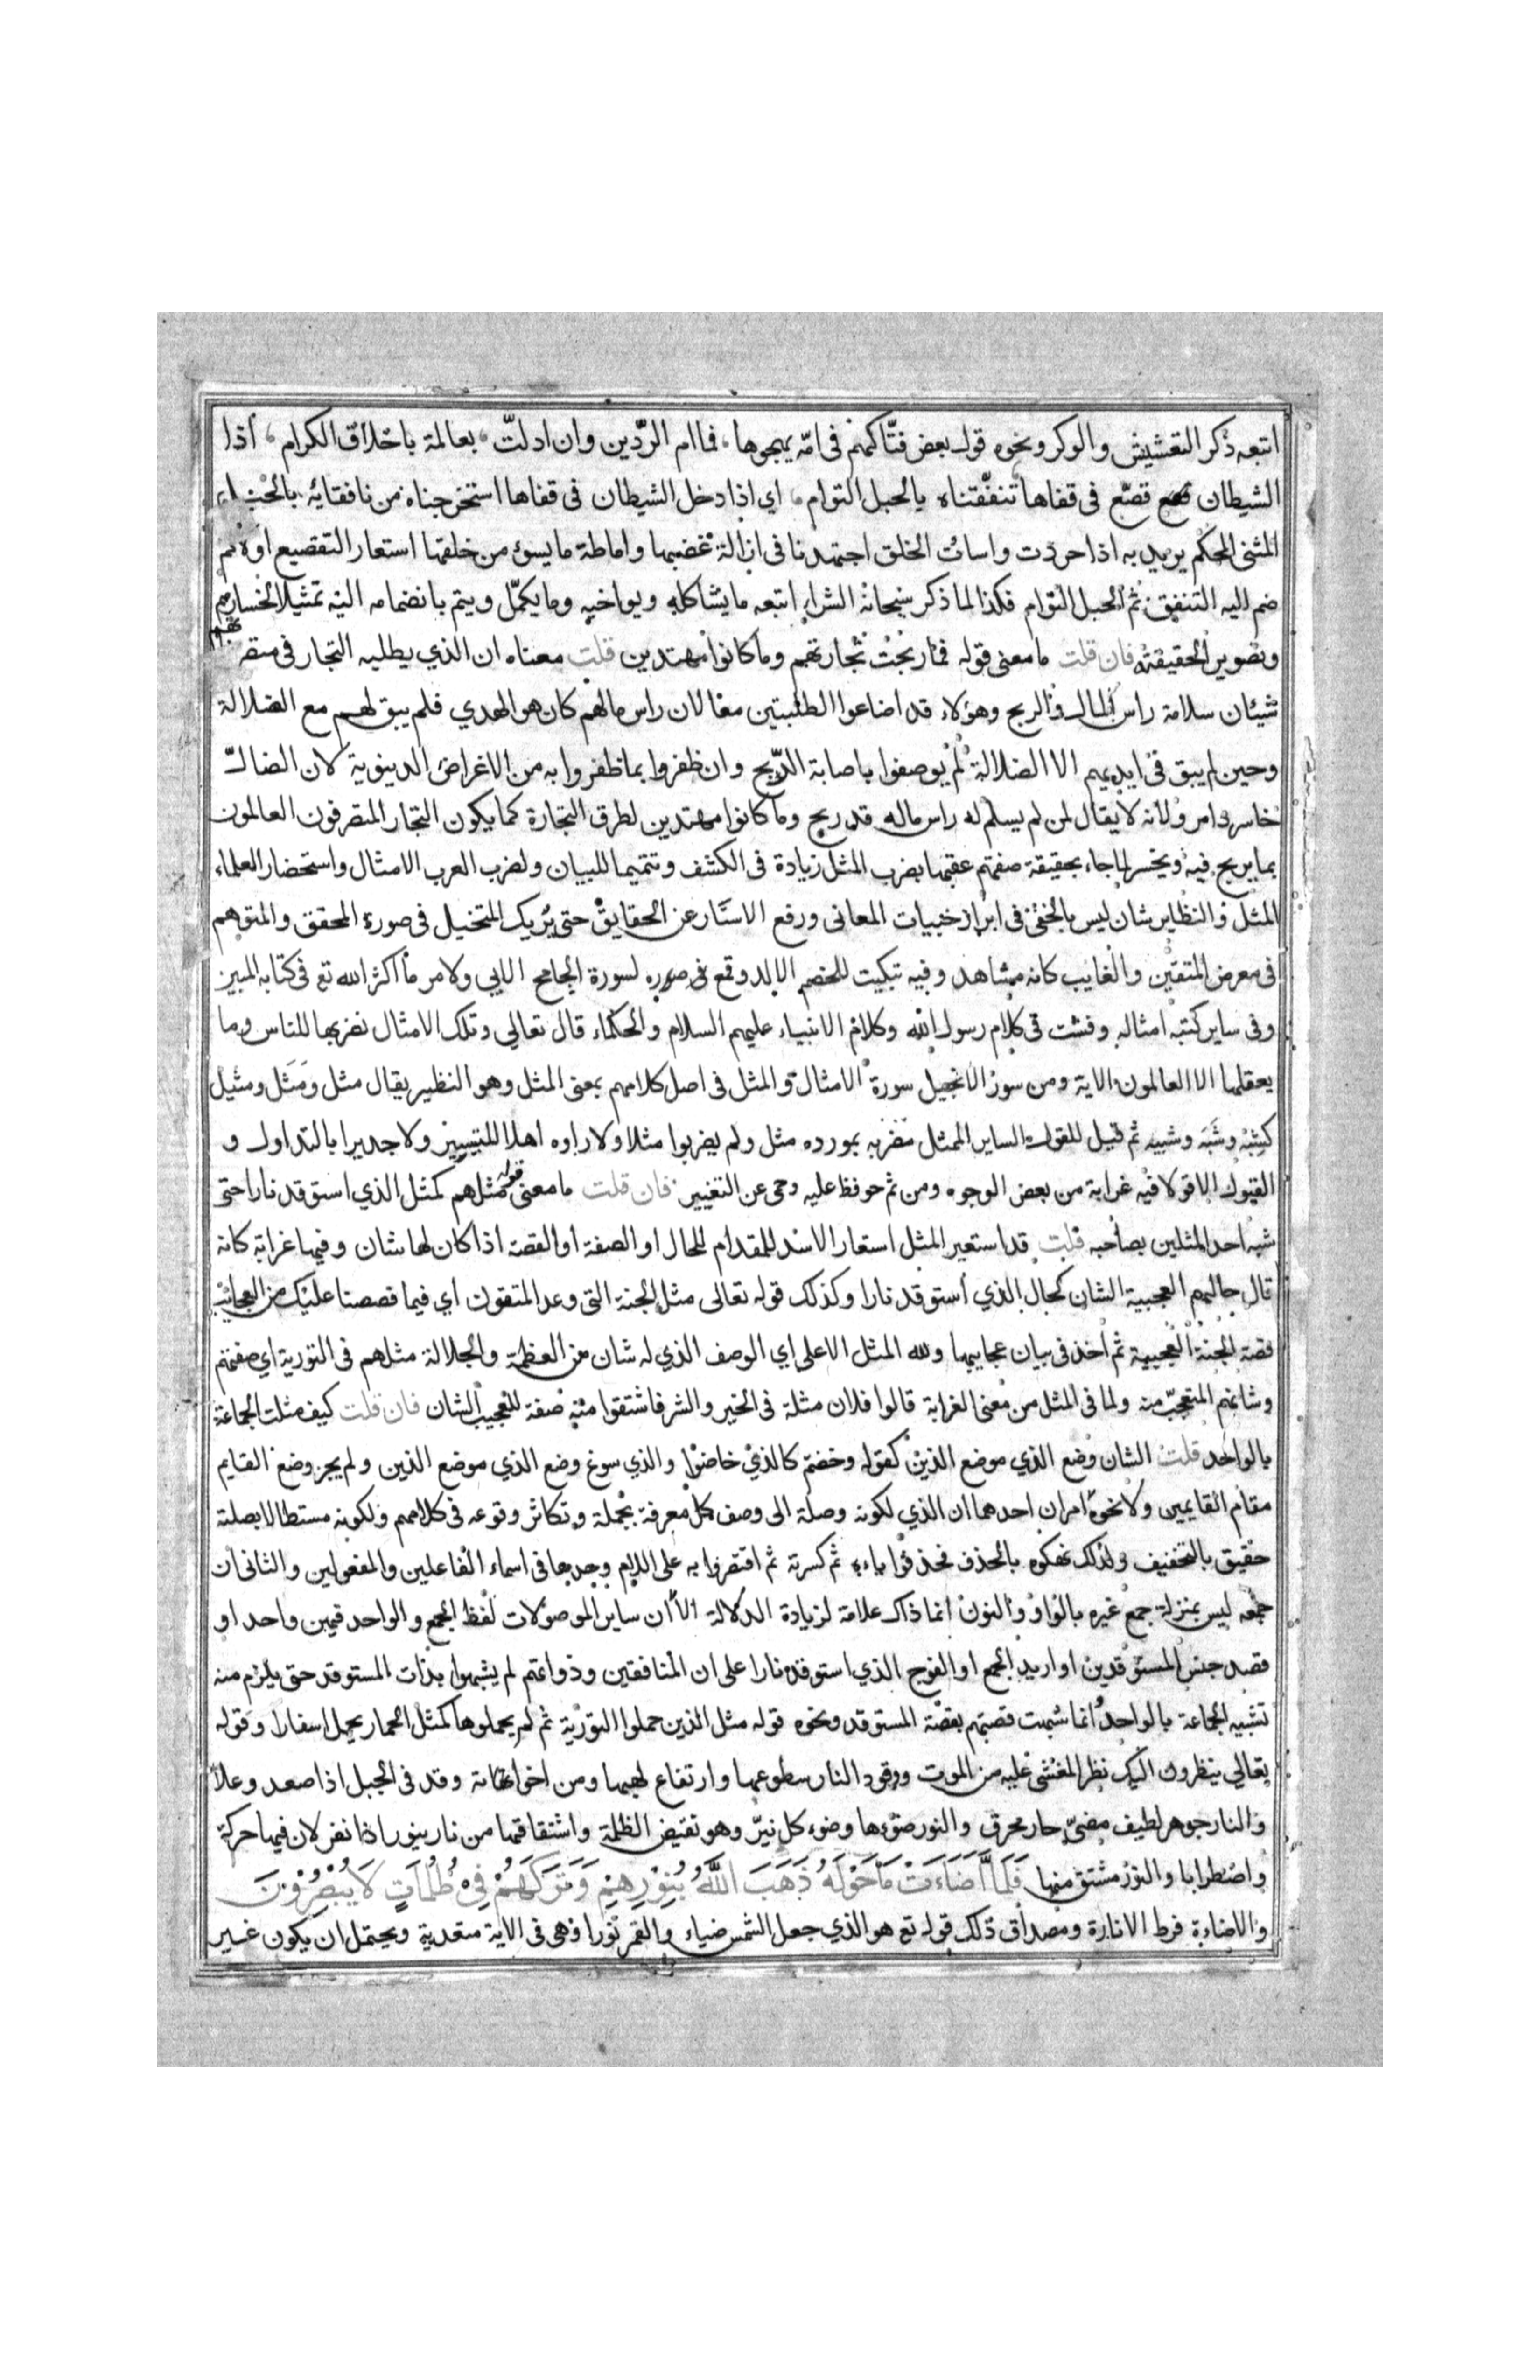 اتبعه ذكر التعشيش والوكر ونحوه قول بعض فتّاكهم في امّه يهجوها، فما ام الردّين وان ادلتّ، بعالمة باخلاق الكرام، اذا
الشيطان قصّع في قفاها تنفّقناه بالحبل التوام، اي اذا دخل الشيطان في قفاها استخرجناه من نافقائه بالحبل
المثنى المحكم يريد به اذا حردت واسات الخلق اجتهدنا في ازالة غضبها واماطة ما يسوء من خلقها استعار التقصيع اولا ثم
ضم اليه التنفق ثم الحبل التوام فكذا لما ذكر سبحانه الشراء اتبعه ما يشاكله ويواخيه وما يكمّل ويتم بانضمامه اليه تمثيلا لخسارهم
وتصوير الحقيقته فان قلت ما معنى قوله فما ربحت تجارتهم وما كانوا مهتدين قلت معناه ان الذي يطلبه التجار في متصرفاتهم
شيئان سلامة راس المال والربح وهؤلاء قد اضاعوا الطلبتين معا لان راس مالهم كان هو الهدي فلم يبق لهم مع الضلالة
وحين لم يبق في ايديهم الا الضلالة لم يوصفوا باصابة الربح وان ظفروا بما ظفروا به من الاغراض الدينوية لان الضالّ
خاسر دامر ولانه لا يقال لمن لم يسلم له راس ماله قد ربح وما كانوا مهتدين لطرق التجارة كما يكون التجار المتصرفون العالمون
بما يربح فيه ويخسر لما جاء بحقيقة صفتهم عقبها بضرب المثل زيادة في الكشف وتتميما للبيان ولضرب العرب الامثال واستحضار العلماء
المثل والنظاير شان ليس بالخفى في ابراز خبيات المعانى ورفع الاستار عن الحقايق حتى يريك المتخيل في صورة المحقق والمتوهم
في معرض المتقين والغايب كانه مشاهد وفيه تبكيت للخصم الالد وقمع لسورة الجامح الابي ولامر ما اكثر الله تع في كتابه المبين
وفي ساير كتبه امثاله وفشت في كلام رسول الله وكلام الانبياء عليهم السلام والحكماء قال تعالي وتلك الامثال نضربها للناس وما
يعقلها الا العالمون الاية ومن سور الانجيل سورة الامثال والمثل في اصل كلامهم بمعنى المثل وهو النظير يقال مثل ومَثَل ومثيل
كشِبْه وشَبَه وشبيه ثم قيل للقول الساير الممثل مضربه بمورده مثل ولم يضربوا مثلا ولا راوه اهلا للتسيير ولا جديرا بالتداول و
القبول الا قولا فيه غرابة من بعض الوجوه ومن ثم حوفظ عليه وحمى عن التغيير فان قلت ما معنى قوله مثلهم كمثل الذي استوقد نارا حتى
شبه احد المثلين بصاحبه قلت قد استعير المثل استعار الاسد للمقدام للحال او الصفة او القصة اذا كان لها شان وفيها غرابة كانه
قال حالهم العجيبة الشان كحال الذي استوقد نارا وكذلك قوله تعالى مثل الجنة التي وعد المتقون اي فيما قصصنا عليك من العجايب
قصة الجنة العجيبة ثم اخذ في بيان عجايبها ولله المثل الاعلى اي الوصف الذي له شان من العظمة والجلالة مثلهم في التورية اي صفتهم
وشانهم المتعجّب منه ولما في المثل من معنى الغرابة قالوا فلان مثلة في الخير والشر فاشتقوا منه صفة للعجيب الشان فان قلت كيف مثلت الجماعة
بالواحد قلت الشان وضع الذي موضع الذين كقوله وخضتم كالذي خاضوا والذي سوغ وضع الذي موضع الذين ولم يجز وضع القايم
مقام القايمين ولا نحوه امران احدهما ان الذي لكونه وصلة الى وصف كل معرفة بجملة وتكاثر وقوعه في كلامهم ولكونه مستطالا بصلته
حقيق بالتخفيف ولذلك نهكوه بالحذف فحذفوا ياءه ثم كسرته ثم اقتصروا به على اللام وحدها في اسماء الفاعلين والمفعولين والثانى ان
جمعه ليس بمنزلة جمع غيره بالواو والنون انما ذاك علامة لزيادة الدلالة الا ان ساير الموصولات لفظ الجمع والواحد فيهن واحد او
قصد جنس المستوقدين او اريد الجمع او الفوج الذي استوقد نارا على ان المنافقين وذواتهم لم يشبهوا بذات المستوقد حتى يلزم منه
تشبيه الجماعة بالواحد انما شبهت قصتهم بقصة المستوقد ونحوه قوله مثل الذين حملوا التورية ثم لم يحملوها كمثل الحمار يحمل اسفارا وقوله
تعالي ينظرون اليك نظر المغشي عليه من الموت ووقود النار سطوعها وارتفاع لهبها ومن اخواته وقد في الجبل اذا صعد وعلا
والنار جوهر لطيف مضيّ حار محرق والنور ضوءها وضوء كل نيرّ وهو نقيض الظلمة واشتقاقها من نار ينور اذا نفر لان فيها حركة
واضطرابا والنور مشتق منها فَلَمَّا اَضَاءَتْ مَا حَوْلَهُ ذَهَبَ اللَّهُ بِنُوْرِهِمْ وَتَرَكَهُمْ فِي ظُلُمَاتٍ لَا يُبْصِرُوْنَ
والاضاءة فرط الانارة ومصداق ذلك قوله تع هو الذي جعل الشمس ضياء والقمر نورا وهى في الاية متعدية ويحتمل ان يكون غير